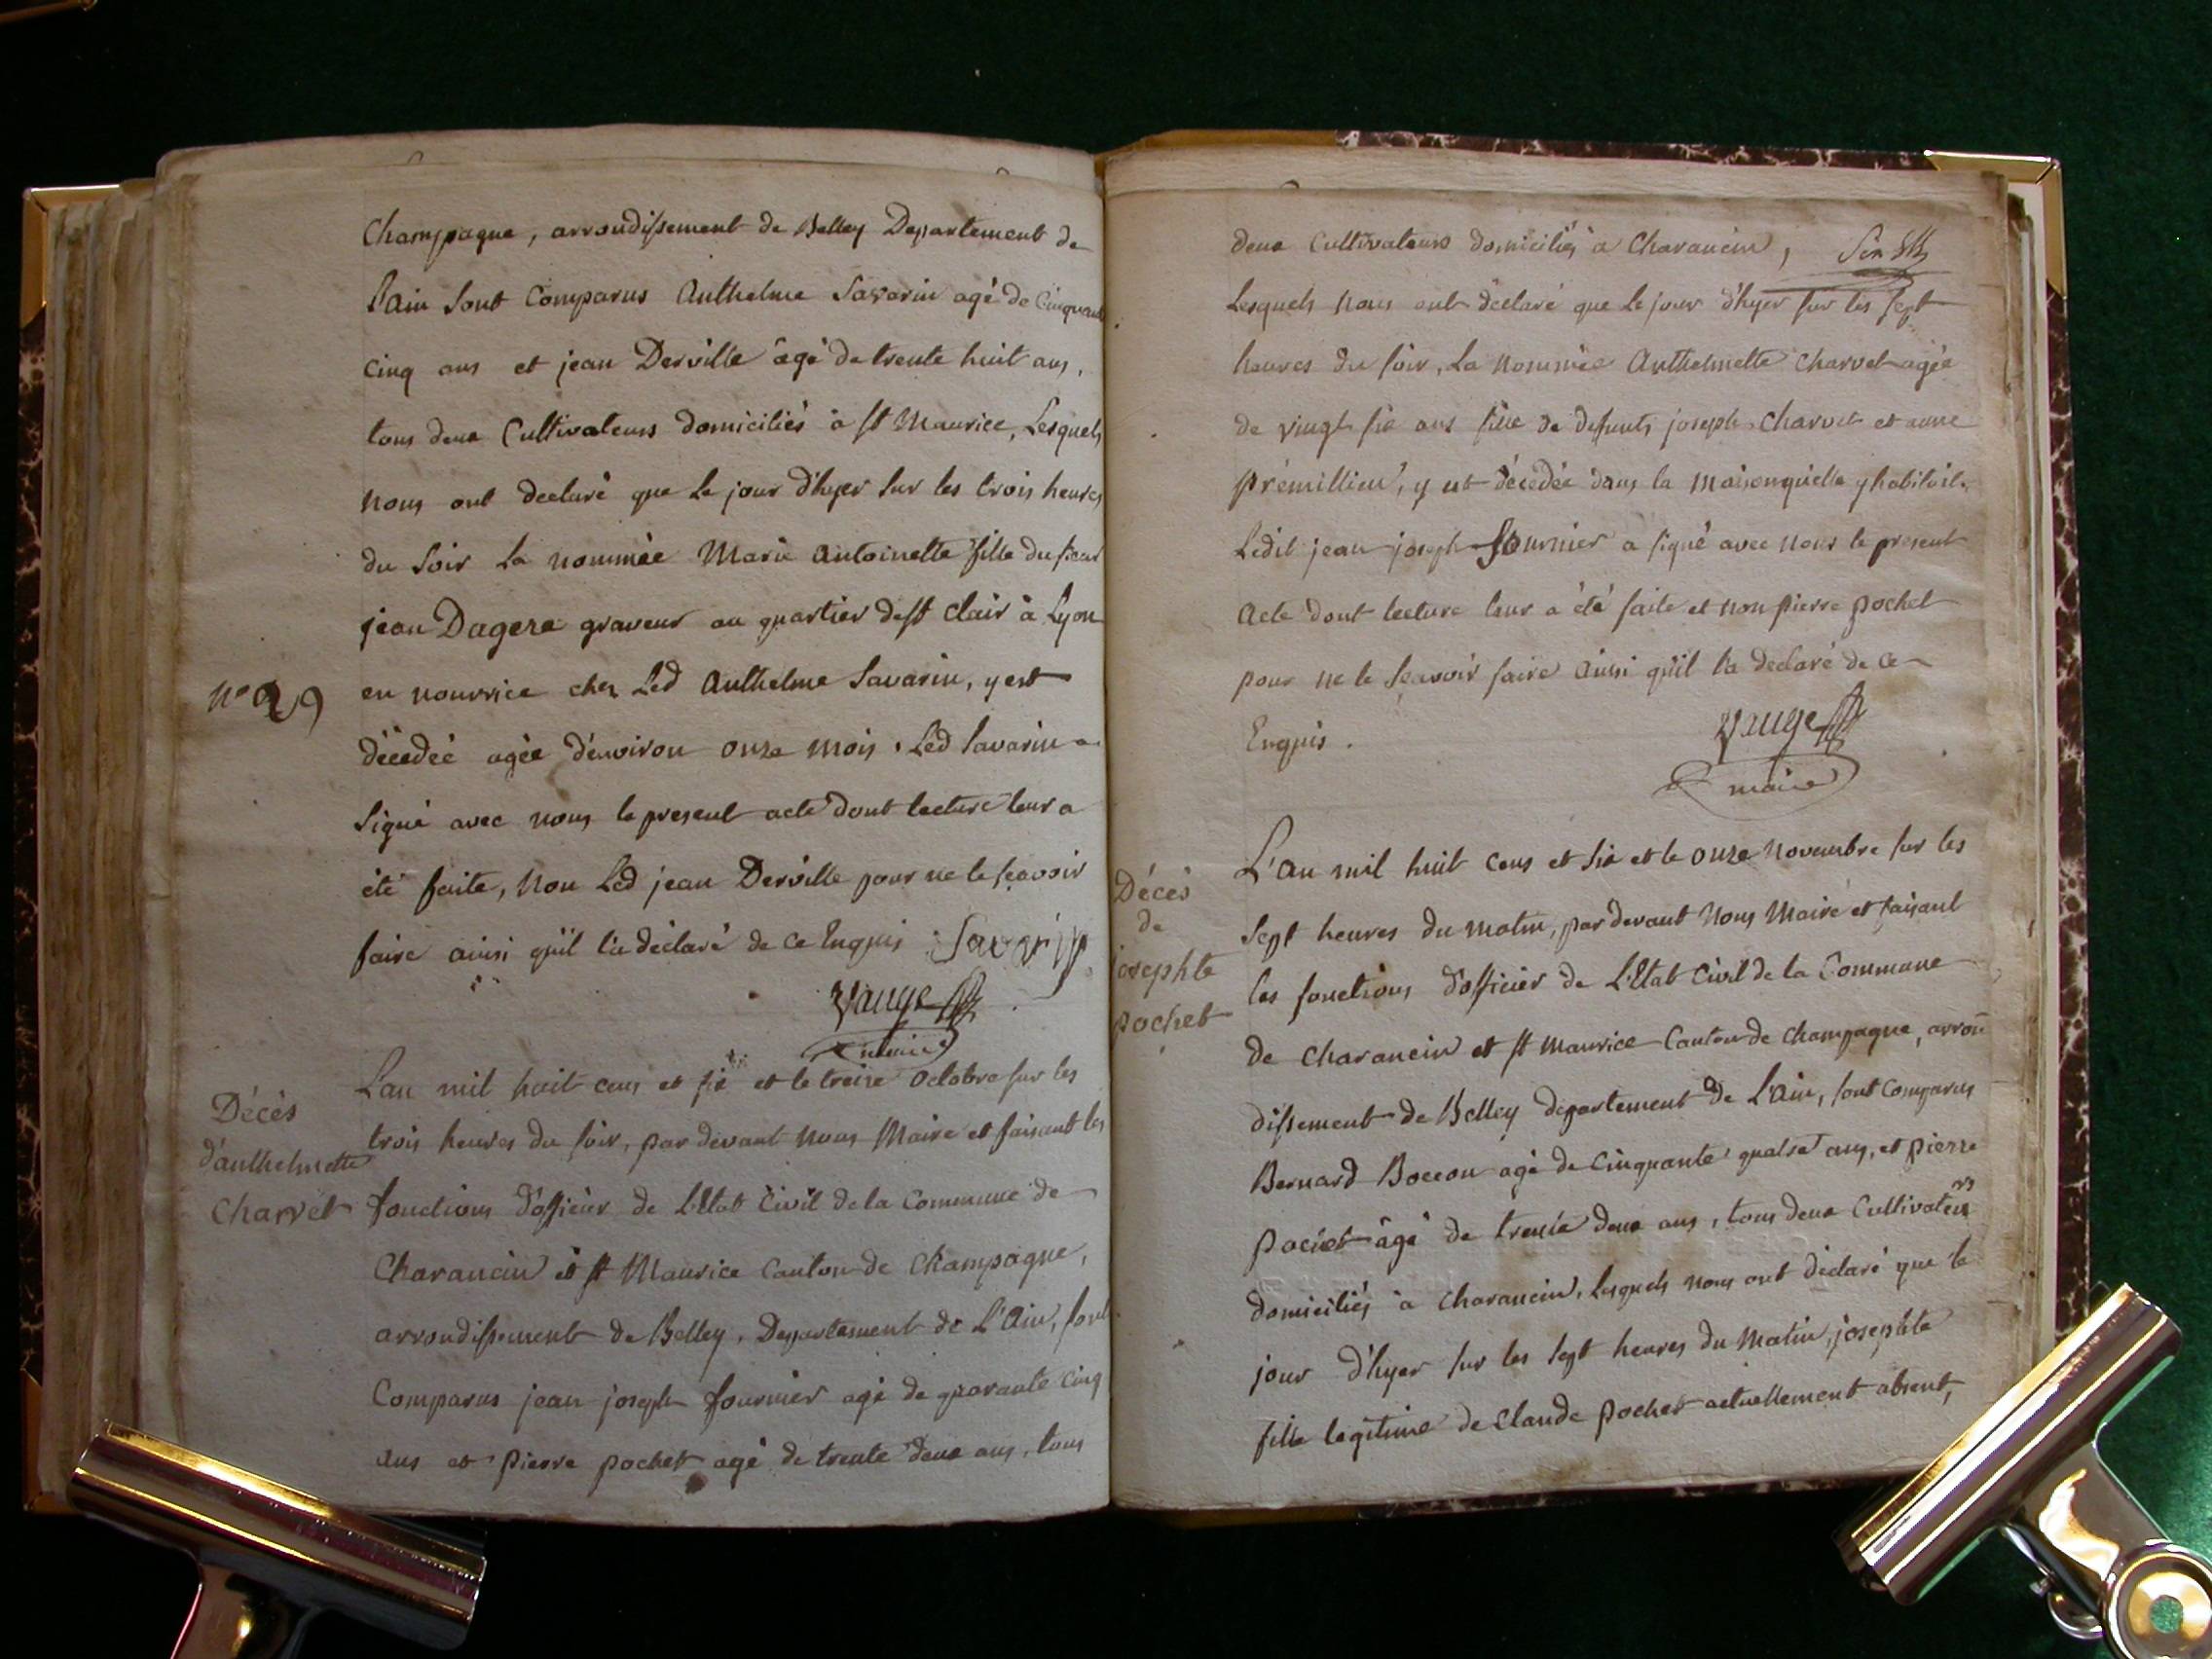 Champagne, arrondissement de Belley Departement de
l'Ain sont Comparus Anthelme Savarin agé de Cinquante
cinq ans et jean Derville agé de trente huit ans,
tous deux Cultivateurs domiciliés à st Maurice, Lesquels
nous ont declaré que le jour d'hyer sur les trois heures
du soir la nommée Marie Antoinette fille du sieur
jean Dagere graveur au quartier de st Clair à Lyon
N° 29
en nourrice chez Led Anthelme Savarin, y est
décedée agée d'environ onze mois. Led Savarin a
signé avec nous le present acte dont lecture leur a
été faite, Non Led jean Derville pour ne le sçavoir
faire ainsi qu'il l'a déclaré de ce Enquis. Savarin
Vauge
maire
Décès
d'anthelmette
Charvet
L'an mil huit cens et six et le treize octobre sur les
trois heures du soir, par devant nous Maire et faisant les
fonctions d'officier de L'Etat Civil de la Commune de
Charancin et st Maurice Canton de Champagne,
arrondissement de Belley, Departement de L'Ain, sont
Comparus jean joseph fournier agé de quarante cinq
ans et pierre pochet agé de trente deux ans, tous
deux Cultivateurs domiciliés à Charancin,
Lesquels nous ont déclaré que le jour d'hyer sur les sept
heures du soir, La nommée Anthelmette Charvet agée
de vingt six ans fille de defunts joseph Charvet et anne
prémillieu, y est décedée dans la maison qu'elle y habitoit.
Ledit jean joseph fournier a signé avec nous le present
acte dont lecture leur a été faite et non pierre pochet
pour ne le sçavoir faire ainsi qu'il l'a declaré de ce
Enquis.
Vauge
maire
Décès
de
josephte
pochet
L'an mil huit cens et six et le onze novembre sur les
sept heures du matin, par devant Nous Maire et faisant
les fonctions d'officier de L'Etat Civil de la Commune
de Charancin et st Maurice Canton de Champagne, arron
dissement de Belley departement de L'Ain, sont Comparus
Bernard Boccon agé de Cinquante quatre ans, et pierre
pochet âgé de trente deux ans, tous deux Cultivateurs
domiciliés à Charancin, Lesquels nous ont déclaré que le
jour d'hyer sur les sept heures du Matin, josephte
fille legitime de Claude pochet actuellement absent,